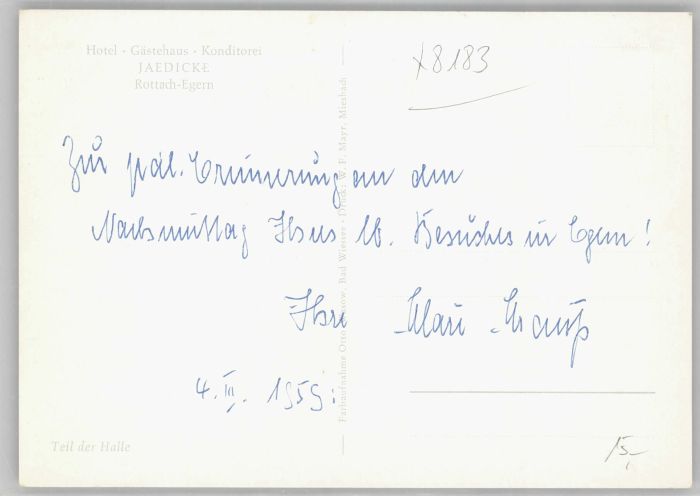 Hotel · Gästehaus · Konditorei
JAEDICKE
Rottach-Egern
x8183
Zur frdl. Erinnerung an den
Nachmittag Ihres lb. Besuches in Egern!
Ihre
4. III. 1959.
Teil der Halle
15,-
Druck: W. F. Mayr, Miesbach
Farbaufnahme Otto Bad Wiessee